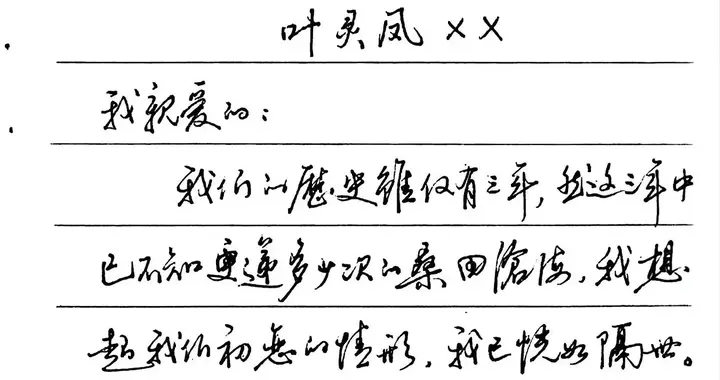 叶灵凤××
我親爱的：
我们的歷史雖仅有三年，然这三年中
已不知更递多少次的桑田滄海，我想
起我们初恋的情形，我已恍如隔世。